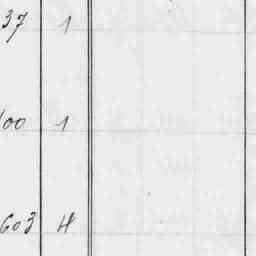 37 1
100 1
603 H